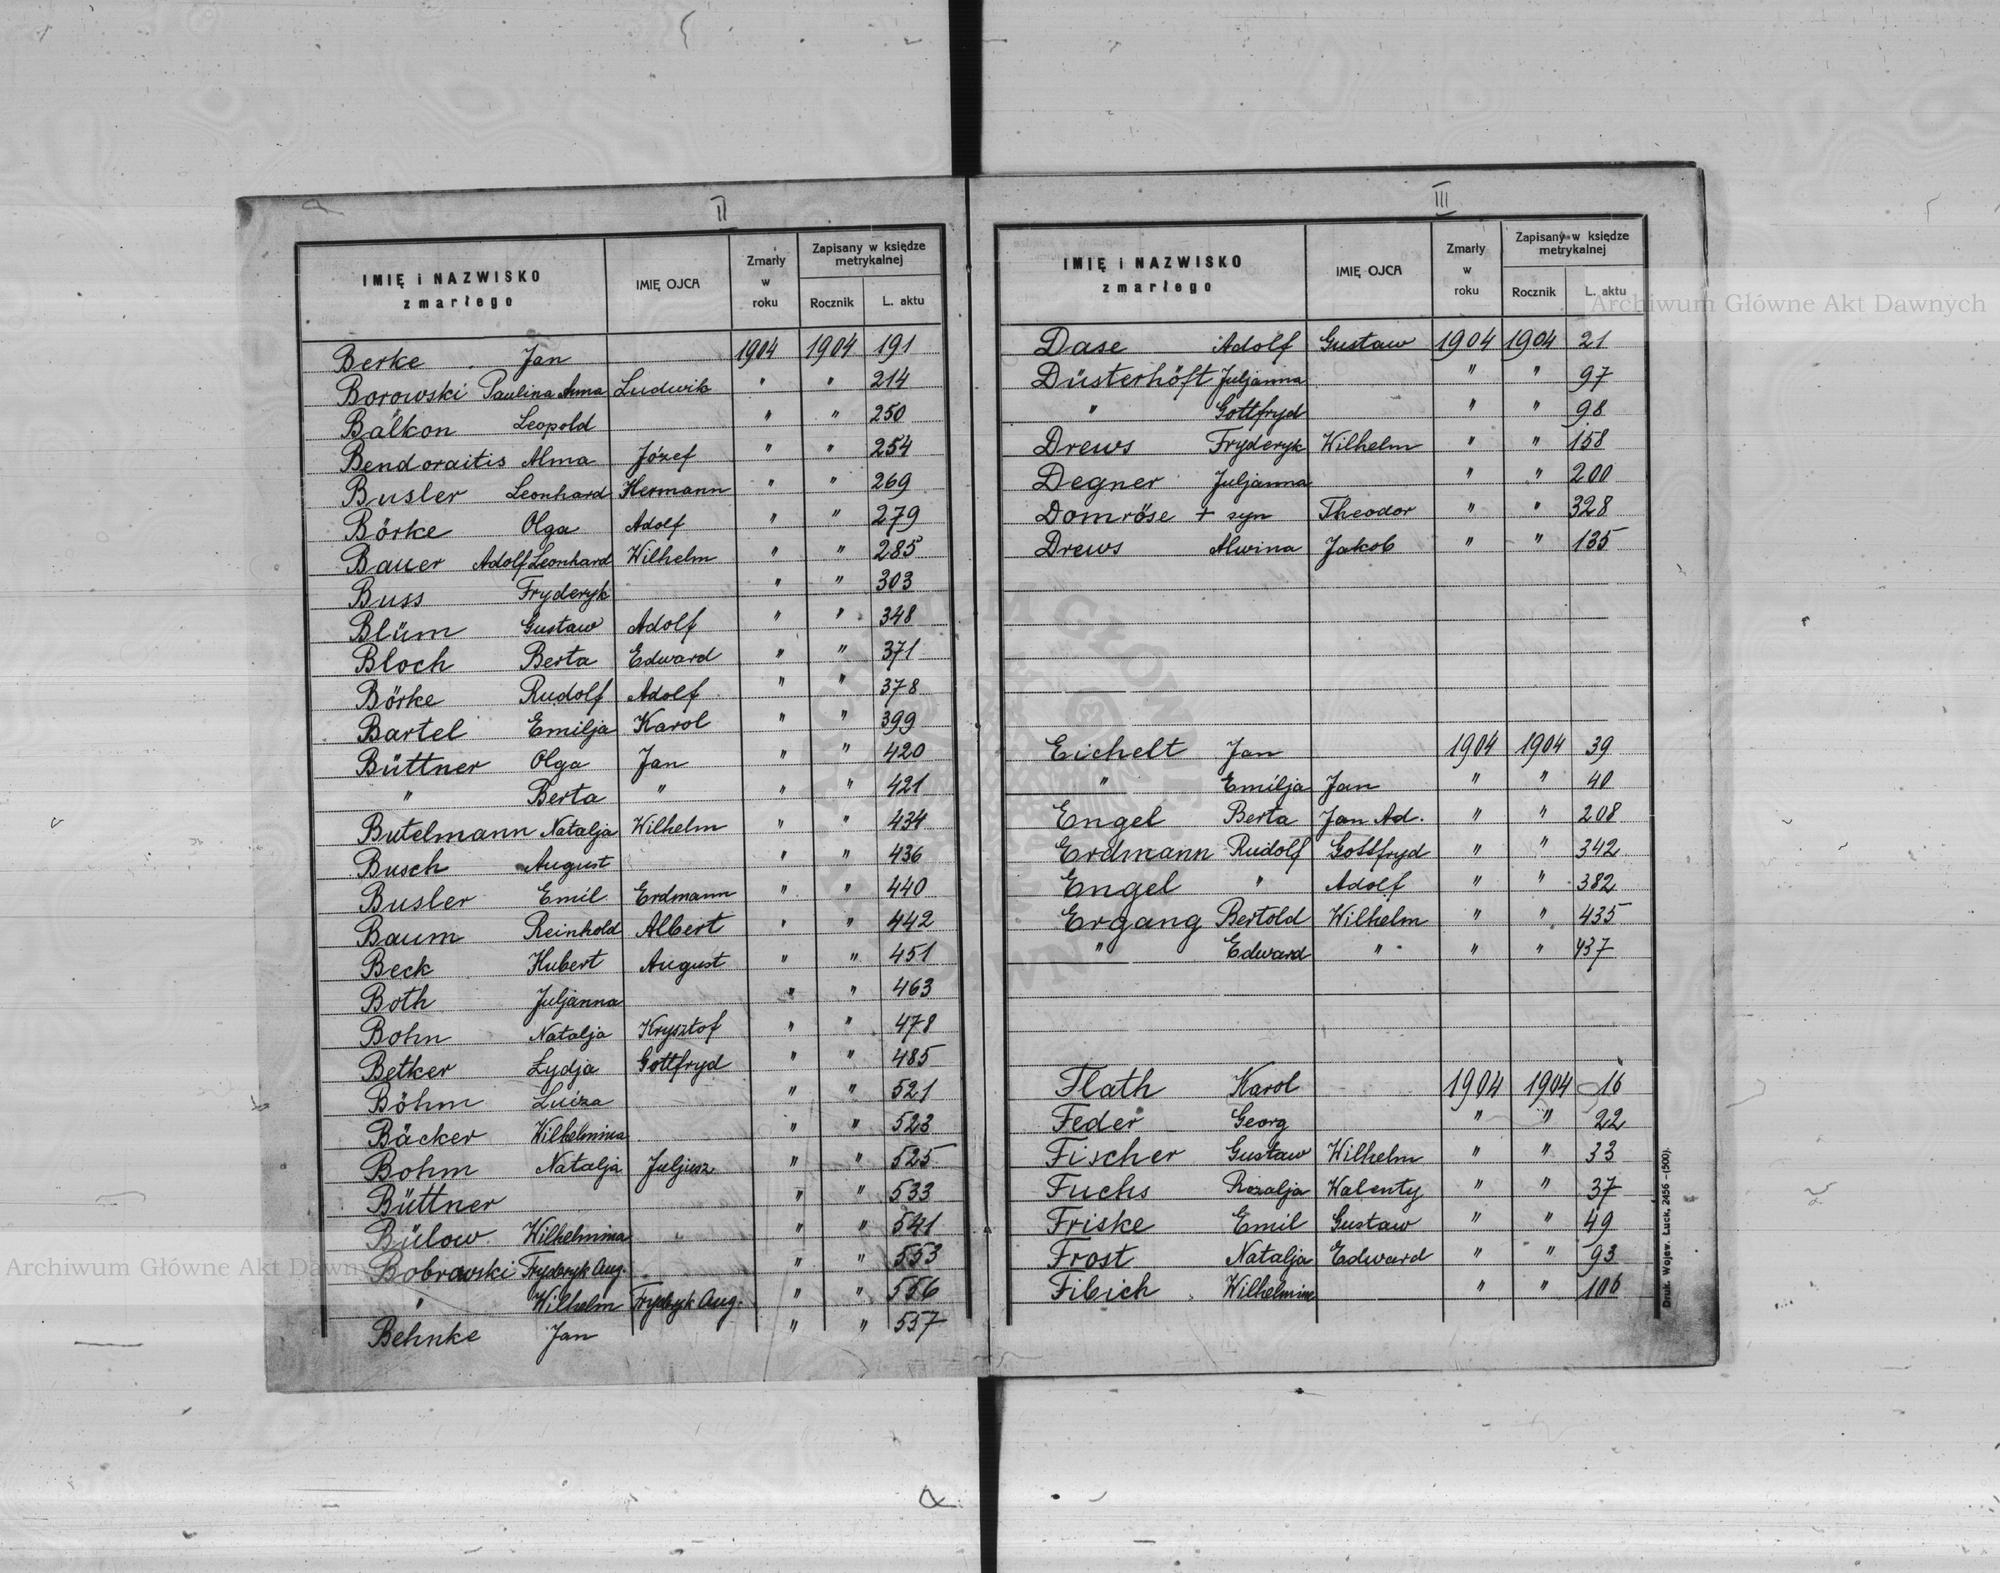 II
IMIĘ i NAZWISKO zmarłego IMIĘ OJCA Zmarły w roku Zapisany w księdze metrykalnej Rocznik L. aktu
Berke Jan 1904 1904 191
Borowski Paulina Anna Ludwik " " 214
Balkon Leopold " " 250
Bendoraitis Alma Józef " " 254
Busler Leonhard Hermann " " 269
Börke Olga Adolf " " 279
Bauer Adolf Leonhard Wilhelm " " 285
Buss Fryderyk " " 303
Blüm Gustaw Adolf " " 348
Bloch Berta Edward " " 371
Börke Rudolf Adolf " " 378
Bartel Emilja Karol " " 399
Büttner Olga Jan " " 420
" Berta " " " 421
Butelmann Natalja Wilhelm " " 434
Busch August " " 436
Busler Emil Erdmann " " 440
Baum Reinhold Albert " " 442
Beck Hubert August " " 451
Both Juljanna " " 463
Bohn Natalja Krysztof " " 478
Betker Łydja Gottfryd " " 485
Böhm Luiza " " 521
Bäcker Wilhelmina " " 523
Bohm Natalja Juljusz " " 525
Büttner " " 533
Bülow Wilhelmina " " 541
Bobrowski Fryderyk Aug. " " 553
" Wilhelm Fryderyk Aug. " " 556
Behnke Jan " " 557
III
IMIĘ i NAZWISKO zmarłego IMIĘ OJCA Zmarły w roku Zapisany w księdze metrykalnej Rocznik L. aktu
Dase Adolf Gustaw 1904 1904 21
Düsterhöft Juljanna " " 97
" Gottfryd " " 98
Drews Fryderyk Wilhelm " " 158
Degner Juljanna " " 200
Domröse + syn Theodor " " 328
Drews Alwina Jakob " " 135
Eichelt Jan 1904 1904 39
" Emilja Jan " " 40
Engel Berta Jan Ad. " " 208
Erdmann Rudolf Gottfryd " " 342
Engel " Adolf " " 382
Ergang Bertold Wilhelm " " 435
" Edward " " " 437
Flath Karol 1904 1904 16
Feder Georg " " 22
Fischer Gustaw Wilhelm " " 33
Fuchs Rozalja Walenty " " 37
Friske Emil Gustaw " " 49
Frost Natalja Edward " " 93
Fibich Wilhelmine " " 106
Druk. Wojew. Łuck, 2456 –(500).
Archiwum Główne Akt Dawnych
Archiwum Główne Akt Dawnych